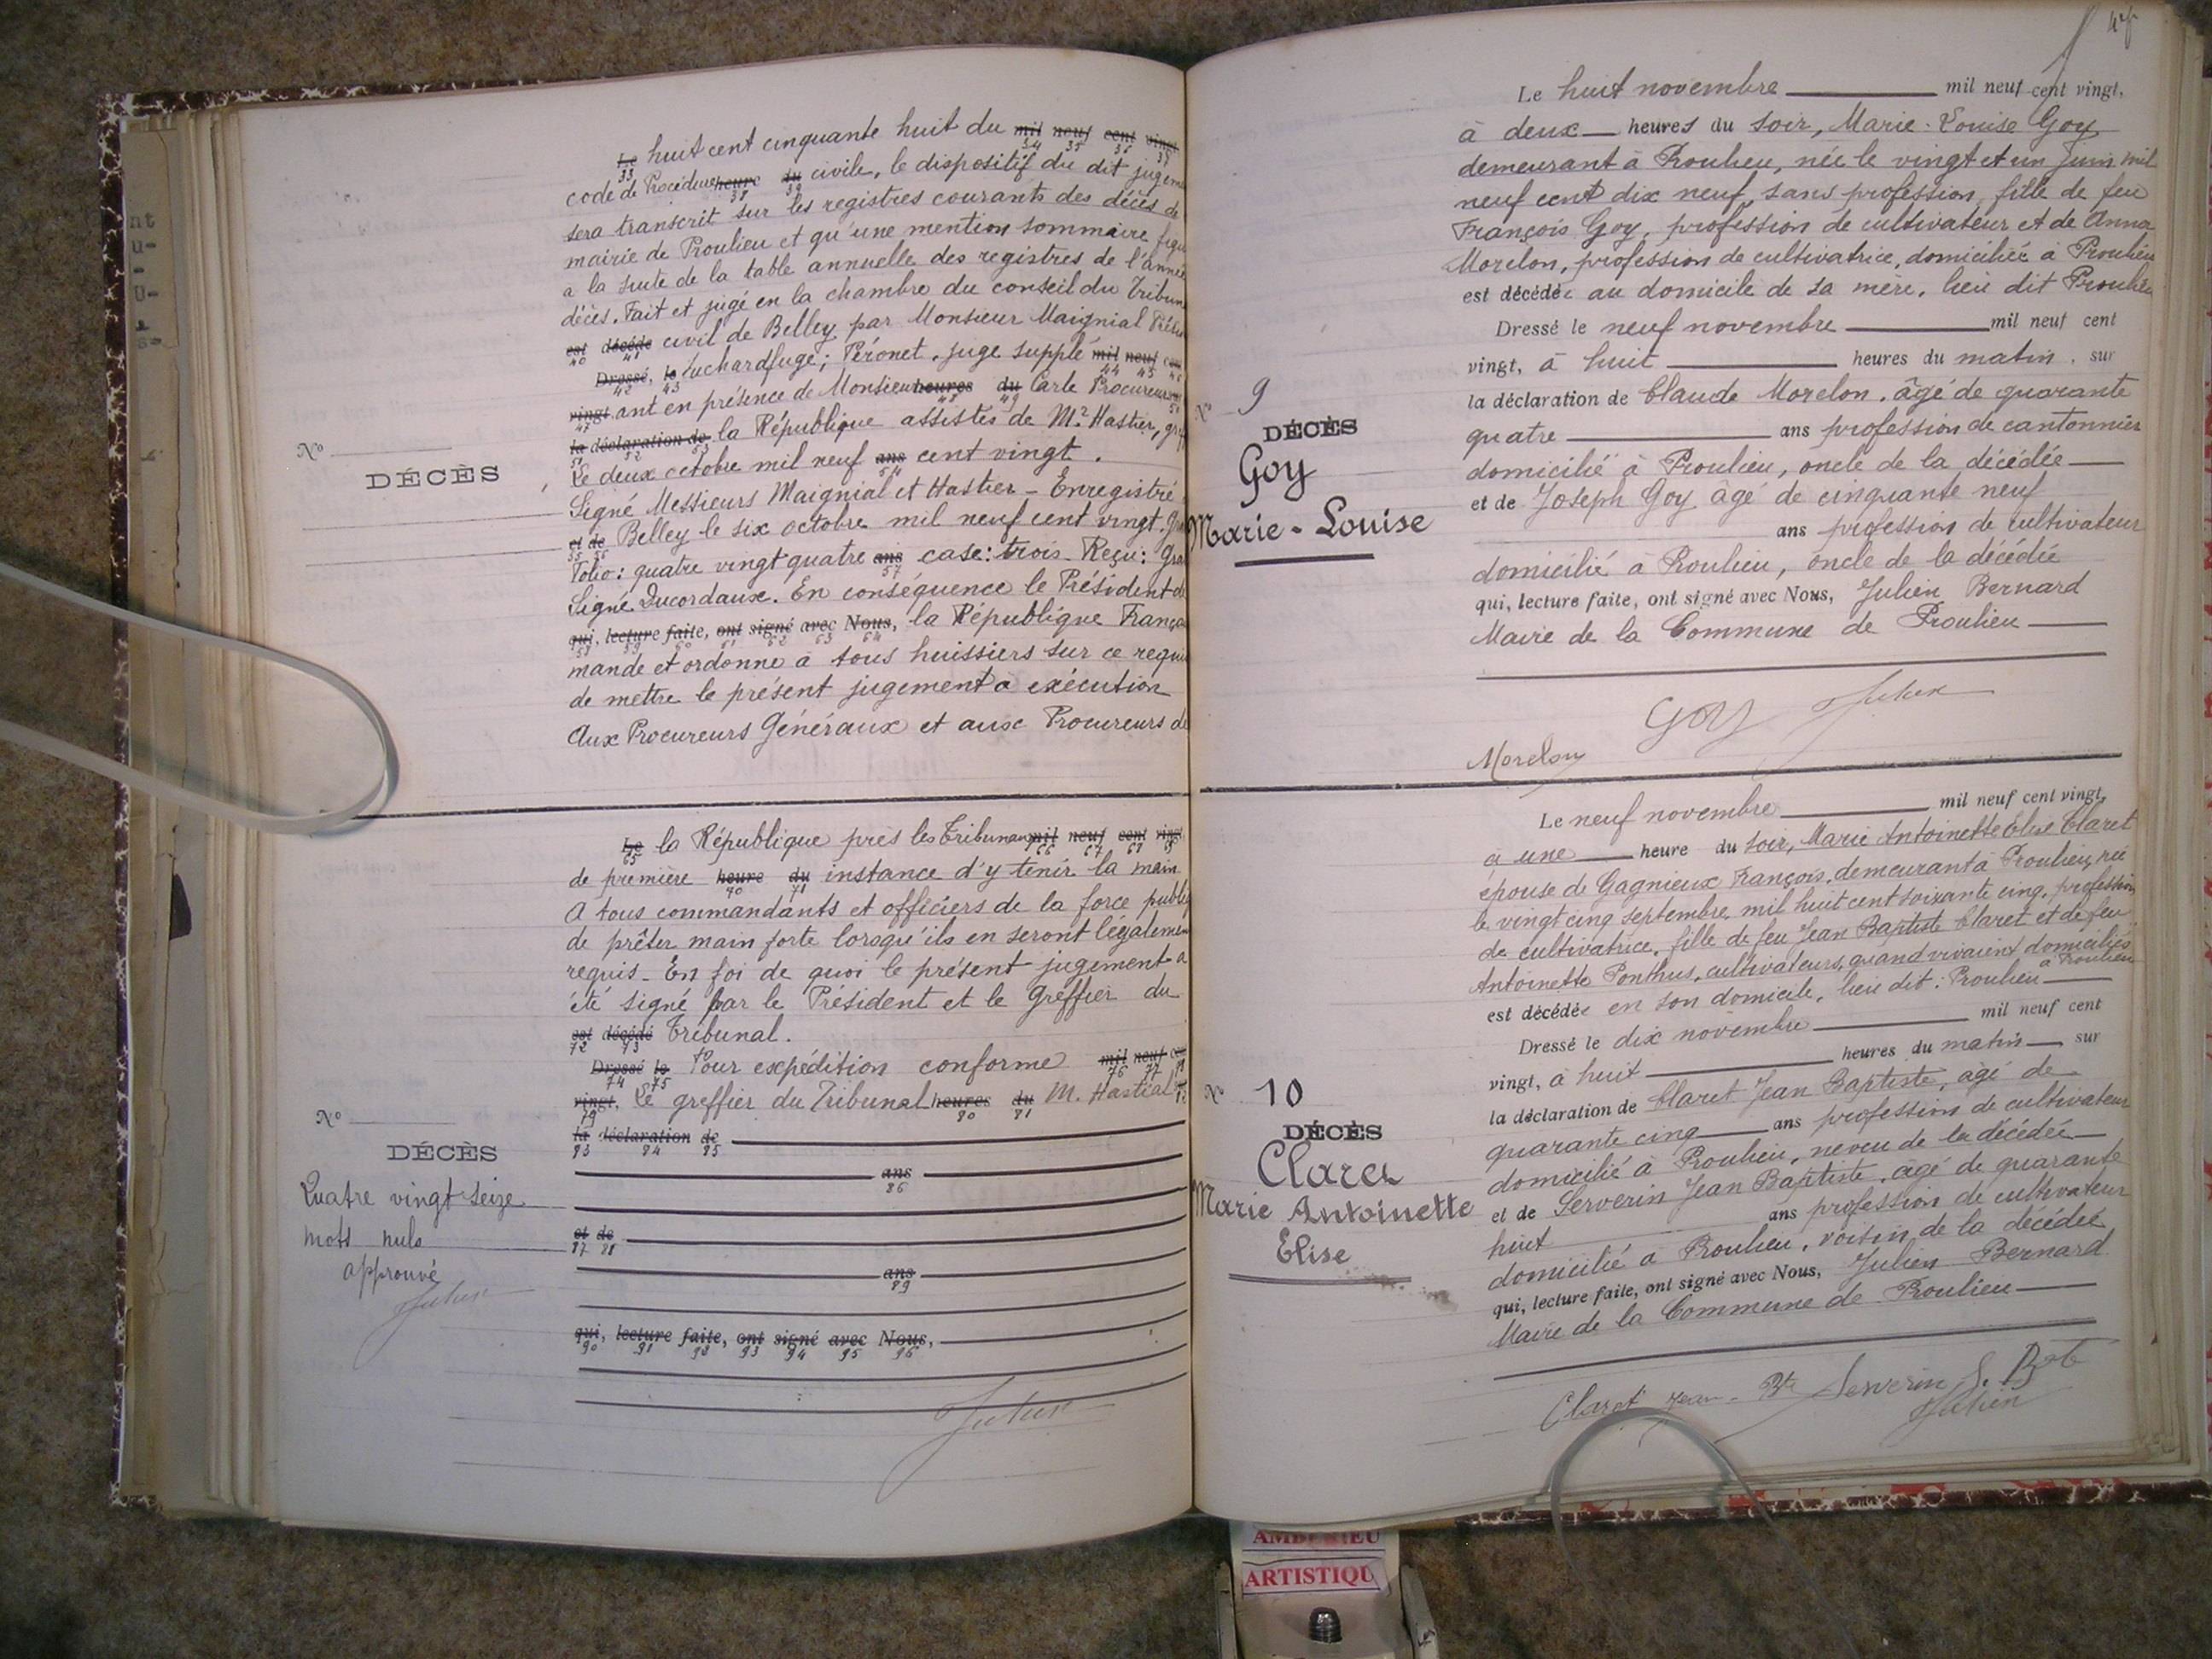 Le huit cent cinquante huit du mil neuf cent vingt
33 34 35 36 37
code de Procédure heure du civile, le dispositif du dit jugem
38 39
sera transcrit sur les registres courants des décès de
mairie de Proulieu et qu'une mention sommaire figu
a la suite de la table annuelle des registres de l'année
décès. Fait et jugé en la chambre du conseil du Tribun
est décédé civil de Belley par Monsieur Maignial Prési
40 41
Dressé, le
42 43 44 45 46
juge supplé mil neuf
vingt ant en présence de Monsieur heures du Carle Procureur
47 48 49
la déclaration de la République assistés de Mr Hastier, gref
51 52 53
Le deux octobre mil neuf ans cent vingt.
54
Signé Messieurs Maignial et Hastier - Enregistré
et de Belley le six octobre mil neuf cent vingt.
55 56
Folio: quatre vingt quatre ans case: trois. Reçu: Gra
57
Signé Ducordaux. En conséquence le Président de
qui, lecture faite, ont signé avec Nous, la République França
58 59 60 61 62 63 64
mande et ordonne à tous huissiers sur ce requi
de mettre le présent jugement a exécution
Aux Procureurs Généraux et aux Procureurs de
No
DÉCÈS
Le la République près les Tribunaux mil neuf cent vingt
65 66 67 68 69
de première heure du instance d'y tenir la main
70 71
A tous commandants et officiers de la force publiq
de prêter main forte lorsqu'ils en seront légalemen
requis - En foi de quoi le présent jugement a
été signé par le Président et le Greffier du
est décédé Tribunal.
72 73
Dressé le Pour expédition conforme mil neuf cen
74 75 76 77 78
vingt. Le greffier du Tribunal heures du M. Hastial
79 80 81
la déclaration de
83 84 85
ans
86
et de
87 88
ans
89
qui, lecture faite, ont signé avec Nous,
90 91 92 93 94 95 96
Julien
No
DÉCÈS
Quatre vingt seize
mots nuls
approuvé
Julien
No 9
DÉCÈS
Goy
Marie-Louise
Le huit novembre mil neuf cent vingt,
à deux heures du soir, Marie-Louise Goy
demeurant à Proulieu, née le vingt et un Juin mil
neuf cent dix neuf, sans profession, fille de feu
François Goy, profession de cultivateur et de Anna
Morelon, profession de cultivatrice, domiciliée à Proulieu
est décédée au domicile de sa mère, lieu dit Proulieu
Dressé le neuf novembre mil neuf cent
vingt, à huit heures du matin, sur
la déclaration de Claude Morelon, âgé de quarante
quatre ans profession de cantonnier
domicilié à Proulieu, oncle de la décédée
et de Joseph Goy âgé de cinquante neuf
ans profession de cultivateur
domicilié à Proulieu, oncle de la décédée
qui, lecture faite, ont signé avec Nous, Julien Bernard
Maire de la Commune de Proulieu
GOY Julien
Morelon
No 10
DÉCÈS
Claret
Marie Antoinette
Elise
Le neuf novembre mil neuf cent vingt,
à une heure du soir, Marie Antoinette Elise Claret
épouse de Gagnieux François, demeurant à Proulieu, née
le vingt cinq septembre mil huit cent soixante cinq, profession
de cultivatrice, fille de feu Jean Baptiste Claret et de feu
Antoinette Ponthus, cultivateurs, quand vivaient domiciliés
à Proulieu
est décédée en son domicile, lieu dit: Proulieu
Dressé le dix novembre mil neuf cent
vingt, à huit heures du matin sur
la déclaration de Claret Jean Baptiste, âgé de
quarante cinq ans profession de cultivateur
domicilié à Proulieu, neveu de la décédée
et de Serverin Jean Baptiste, âgé de quarante
huit ans profession de cultivateur
domicilié à Proulieu, voisin de la décédée
qui, lecture faite, ont signé avec Nous, Julien Bernard
Maire de la Commune de Proulieu
Claret Jean-Bte Serverin J. Bte
Julien
AMBERIEU
ARTISTIQU